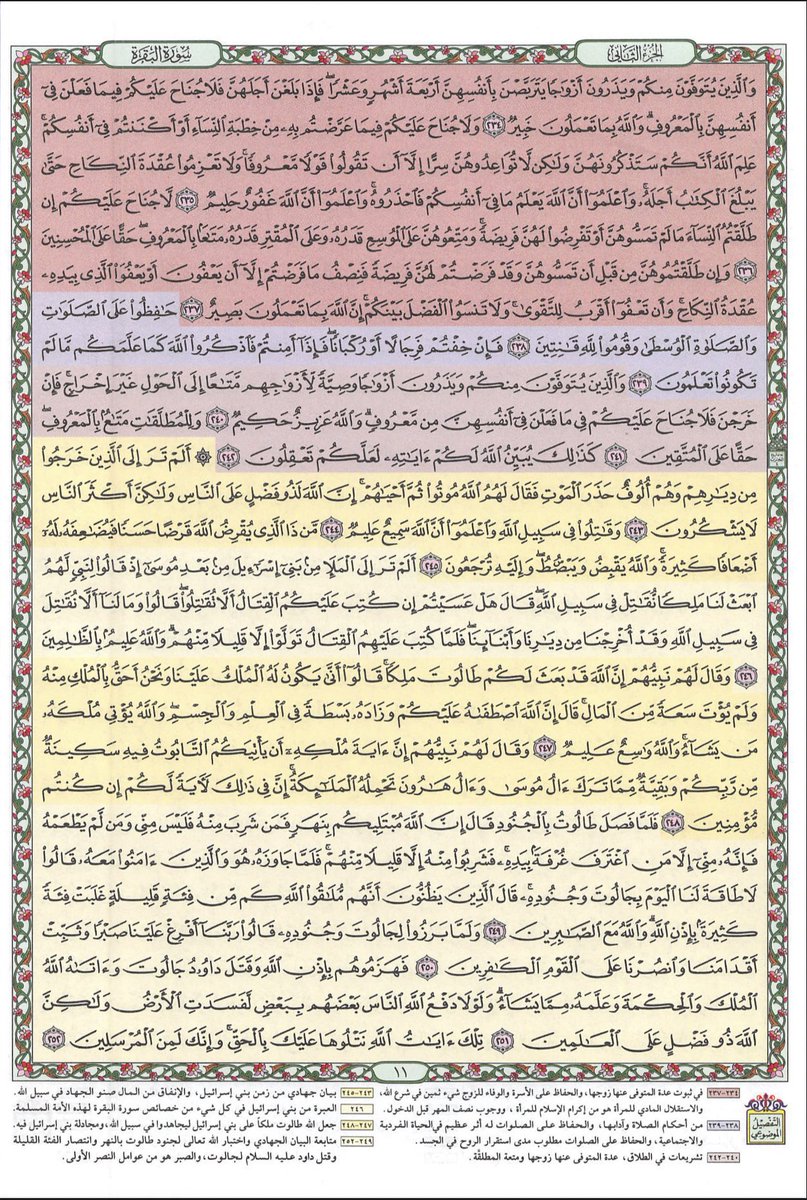 الجزء الثاني
سورة البقرة
وَالَّذِينَ يُتَوَفَّوْنَ مِنكُمْ وَيَذَرُونَ أَزْوَاجًا يَتَرَبَّصْنَ بِأَنفُسِهِنَّ أَرْبَعَةَ أَشْهُرٍ وَعَشْرًا فَإِذَا بَلَغْنَ أَجَلَهُنَّ فَلَا جُنَاحَ عَلَيْكُمْ فِيمَا فَعَلْنَ فِي
أَنفُسِهِنَّ بِالْمَعْرُوفِ وَاللَّهُ بِمَا تَعْمَلُونَ خَبِيرٌ ٢٣٤ وَلَا جُنَاحَ عَلَيْكُمْ فِيمَا عَرَّضْتُم بِهِ مِنْ خِطْبَةِ النِّسَاءِ أَوْ أَكْنَنتُمْ فِي أَنفُسِكُمْ
عَلِمَ اللَّهُ أَنَّكُمْ سَتَذْكُرُونَهُنَّ وَلَكِن لَّا تُوَاعِدُوهُنَّ سِرًّا إِلَّا أَن تَقُولُوا قَوْلًا مَّعْرُوفًا وَلَا تَعْزِمُوا عُقْدَةَ النِّكَاحِ حَتَّى
يَبْلُغَ الْكِتَابُ أَجَلَهُ وَاعْلَمُوا أَنَّ اللَّهَ يَعْلَمُ مَا فِي أَنفُسِكُمْ فَاحْذَرُوهُ وَاعْلَمُوا أَنَّ اللَّهَ غَفُورٌ حَلِيمٌ ٢٣٥ لَّا جُنَاحَ عَلَيْكُمْ إِن
طَلَّقْتُمُ النِّسَاءَ مَا لَمْ تَمَسُّوهُنَّ أَوْ تَفْرِضُوا لَهُنَّ فَرِيضَةً وَمَتِّعُوهُنَّ عَلَى الْمُوسِعِ قَدَرُهُ وَعَلَى الْمُقْتِرِ قَدَرُهُ مَتَاعًا بِالْمَعْرُوفِ حَقًّا عَلَى الْمُحْسِنِينَ
٢٣٦ وَإِن طَلَّقْتُمُوهُنَّ مِن قَبْلِ أَن تَمَسُّوهُنَّ وَقَدْ فَرَضْتُمْ لَهُنَّ فَرِيضَةً فَنِصْفُ مَا فَرَضْتُمْ إِلَّا أَن يَعْفُونَ أَوْ يَعْفُوَا الَّذِي بِيَدِهِ
عُقْدَةُ النِّكَاحِ وَأَن تَعْفُوا أَقْرَبُ لِلتَّقْوَى وَلَا تَنسَوُا الْفَضْلَ بَيْنَكُمْ إِنَّ اللَّهَ بِمَا تَعْمَلُونَ بَصِيرٌ ٢٣٧ حَافِظُوا عَلَى الصَّلَوَاتِ
وَالصَّلَاةِ الْوُسْطَى وَقُومُوا لِلَّهِ قَانِتِينَ ٢٣٨ فَإِنْ خِفْتُمْ فَرِجَالًا أَوْ رُكْبَانًا فَإِذَا أَمِنتُمْ فَاذْكُرُوا اللَّهَ كَمَا عَلَّمَكُم مَّا لَمْ
تَكُونُوا تَعْلَمُونَ ٢٣٩ وَالَّذِينَ يُتَوَفَّوْنَ مِنكُمْ وَيَذَرُونَ أَزْوَاجًا وَصِيَّةً لِّأَزْوَاجِهِم مَّتَاعًا إِلَى الْحَوْلِ غَيْرَ إِخْرَاجٍ فَإِنْ
خَرَجْنَ فَلَا جُنَاحَ عَلَيْكُمْ فِي مَا فَعَلْنَ فِي أَنفُسِهِنَّ مِن مَّعْرُوفٍ وَاللَّهُ عَزِيزٌ حَكِيمٌ ٢٤٠ وَلِلْمُطَلَّقَاتِ مَتَاعٌ بِالْمَعْرُوفِ
حَقًّا عَلَى الْمُتَّقِينَ ٢٤١ كَذَلِكَ يُبَيِّنُ اللَّهُ لَكُمْ آيَاتِهِ لَعَلَّكُمْ تَعْقِلُونَ ٢٤٢ ۞ أَلَمْ تَرَ إِلَى الَّذِينَ خَرَجُوا
مِن دِيَارِهِمْ وَهُمْ أُلُوفٌ حَذَرَ الْمَوْتِ فَقَالَ لَهُمُ اللَّهُ مُوتُوا ثُمَّ أَحْيَاهُمْ إِنَّ اللَّهَ لَذُو فَضْلٍ عَلَى النَّاسِ وَلَكِنَّ أَكْثَرَ النَّاسِ
لَا يَشْكُرُونَ ٢٤٣ وَقَاتِلُوا فِي سَبِيلِ اللَّهِ وَاعْلَمُوا أَنَّ اللَّهَ سَمِيعٌ عَلِيمٌ ٢٤٤ مَّن ذَا الَّذِي يُقْرِضُ اللَّهَ قَرْضًا حَسَنًا فَيُضَاعِفَهُ لَهُ
أَضْعَافًا كَثِيرَةً وَاللَّهُ يَقْبِضُ وَيَبْصُطُ وَإِلَيْهِ تُرْجَعُونَ ٢٤٥ أَلَمْ تَرَ إِلَى الْمَلَإِ مِن بَنِي إِسْرَائِيلَ مِن بَعْدِ مُوسَى إِذْ قَالُوا لِنَبِيٍّ لَّهُمُ
ابْعَثْ لَنَا مَلِكًا نُّقَاتِلْ فِي سَبِيلِ اللَّهِ قَالَ هَلْ عَسَيْتُمْ إِن كُتِبَ عَلَيْكُمُ الْقِتَالُ أَلَّا تُقَاتِلُوا قَالُوا وَمَا لَنَا أَلَّا نُقَاتِلَ
فِي سَبِيلِ اللَّهِ وَقَدْ أُخْرِجْنَا مِن دِيَارِنَا وَأَبْنَائِنَا فَلَمَّا كُتِبَ عَلَيْهِمُ الْقِتَالُ تَوَلَّوْا إِلَّا قَلِيلًا مِّنْهُمْ وَاللَّهُ عَلِيمٌ بِالظَّالِمِينَ
٢٤٦ وَقَالَ لَهُمْ نَبِيُّهُمْ إِنَّ اللَّهَ قَدْ بَعَثَ لَكُمْ طَالُوتَ مَلِكًا قَالُوا أَنَّى يَكُونُ لَهُ الْمُلْكُ عَلَيْنَا وَنَحْنُ أَحَقُّ بِالْمُلْكِ مِنْهُ
وَلَمْ يُؤْتَ سَعَةً مِّنَ الْمَالِ قَالَ إِنَّ اللَّهَ اصْطَفَاهُ عَلَيْكُمْ وَزَادَهُ بَسْطَةً فِي الْعِلْمِ وَالْجِسْمِ وَاللَّهُ يُؤْتِي مُلْكَهُ
مَن يَشَاءُ وَاللَّهُ وَاسِعٌ عَلِيمٌ ٢٤٧ وَقَالَ لَهُمْ نَبِيُّهُمْ إِنَّ آيَةَ مُلْكِهِ أَن يَأْتِيَكُمُ التَّابُوتُ فِيهِ سَكِينَةٌ
مِّن رَّبِّكُمْ وَبَقِيَّةٌ مِّمَّا تَرَكَ آلُ مُوسَى وَآلُ هَارُونَ تَحْمِلُهُ الْمَلَائِكَةُ إِنَّ فِي ذَلِكَ لَآيَةً لَّكُمْ إِن كُنتُم
مُّؤْمِنِينَ ٢٤٨ فَلَمَّا فَصَلَ طَالُوتُ بِالْجُنُودِ قَالَ إِنَّ اللَّهَ مُبْتَلِيكُم بِنَهَرٍ فَمَن شَرِبَ مِنْهُ فَلَيْسَ مِنِّي وَمَن لَّمْ يَطْعَمْهُ
فَإِنَّهُ مِنِّي إِلَّا مَنِ اغْتَرَفَ غُرْفَةً بِيَدِهِ فَشَرِبُوا مِنْهُ إِلَّا قَلِيلًا مِّنْهُمْ فَلَمَّا جَاوَزَهُ هُوَ وَالَّذِينَ آمَنُوا مَعَهُ قَالُوا
لَا طَاقَةَ لَنَا الْيَوْمَ بِجَالُوتَ وَجُنُودِهِ قَالَ الَّذِينَ يَظُنُّونَ أَنَّهُم مُّلَاقُو اللَّهِ كَم مِّن فِئَةٍ قَلِيلَةٍ غَلَبَتْ فِئَةً
كَثِيرَةً بِإِذْنِ اللَّهِ وَاللَّهُ مَعَ الصَّابِرِينَ ٢٤٩ وَلَمَّا بَرَزُوا لِجَالُوتَ وَجُنُودِهِ قَالُوا رَبَّنَا أَفْرِغْ عَلَيْنَا صَبْرًا وَثَبِّتْ
أَقْدَامَنَا وَانصُرْنَا عَلَى الْقَوْمِ الْكَافِرِينَ ٢٥٠ فَهَزَمُوهُم بِإِذْنِ اللَّهِ وَقَتَلَ دَاوُدُ جَالُوتَ وَآتَاهُ اللَّهُ
الْمُلْكَ وَالْحِكْمَةَ وَعَلَّمَهُ مِمَّا يَشَاءُ وَلَوْلَا دَفْعُ اللَّهِ النَّاسَ بَعْضَهُم بِبَعْضٍ لَّفَسَدَتِ الْأَرْضُ وَلَكِنَّ
اللَّهَ ذُو فَضْلٍ عَلَى الْعَالَمِينَ ٢٥١ تِلْكَ آيَاتُ اللَّهِ نَتْلُوهَا عَلَيْكَ بِالْحَقِّ وَإِنَّكَ لَمِنَ الْمُرْسَلِينَ ٢٥٢
١١
التفصيل الموضوعي
٢٣٤-٢٣٧ في ثبوت عدة المتوفى عنها زوجها، والحفاظ على الأسرة والوفاء للزوج شيء ثمين في شرع الله،
والاستقلال المادي للمرأة هو من إكرام الإسلام للمرأة، ووجوب نصف المهر قبل الدخول.
٢٣٨-٢٣٩ من أحكام الصلاة وآدابها، والحفاظ على الصلوات له أثر عظيم في الحياة الفردية
والاجتماعية، والحفاظ على الصلوات مطلوب مدى استقرار الروح في الجسد.
٢٤٠-٢٤٢ تشريعات في الطلاق، عدة المتوفى عنها زوجها ومتعة المطلقة.
٢٤٣-٢٤٥ بيان جهادي من زمن بني إسرائيل، والإنفاق من المال صنو الجهاد في سبيل الله.
٢٤٦ العبرة من بني إسرائيل في كل شيء من خصائص سورة البقرة لهذه الأمة المسلمة.
٢٤٧-٢٤٨ جعل الله طالوت ملكاً على بني إسرائيل ليجاهدوا في سبيل الله، ومجادلة بني إسرائيل فيه.
٢٤٩-٢٥٢ متابعة البيان الجهادي واختبار الله تعالى لجنود طالوت بالنهر وانتصار الفئة القليلة
وقتل داود عليه السلام لجالوت، والصبر هو من عوامل النصر الأولى.